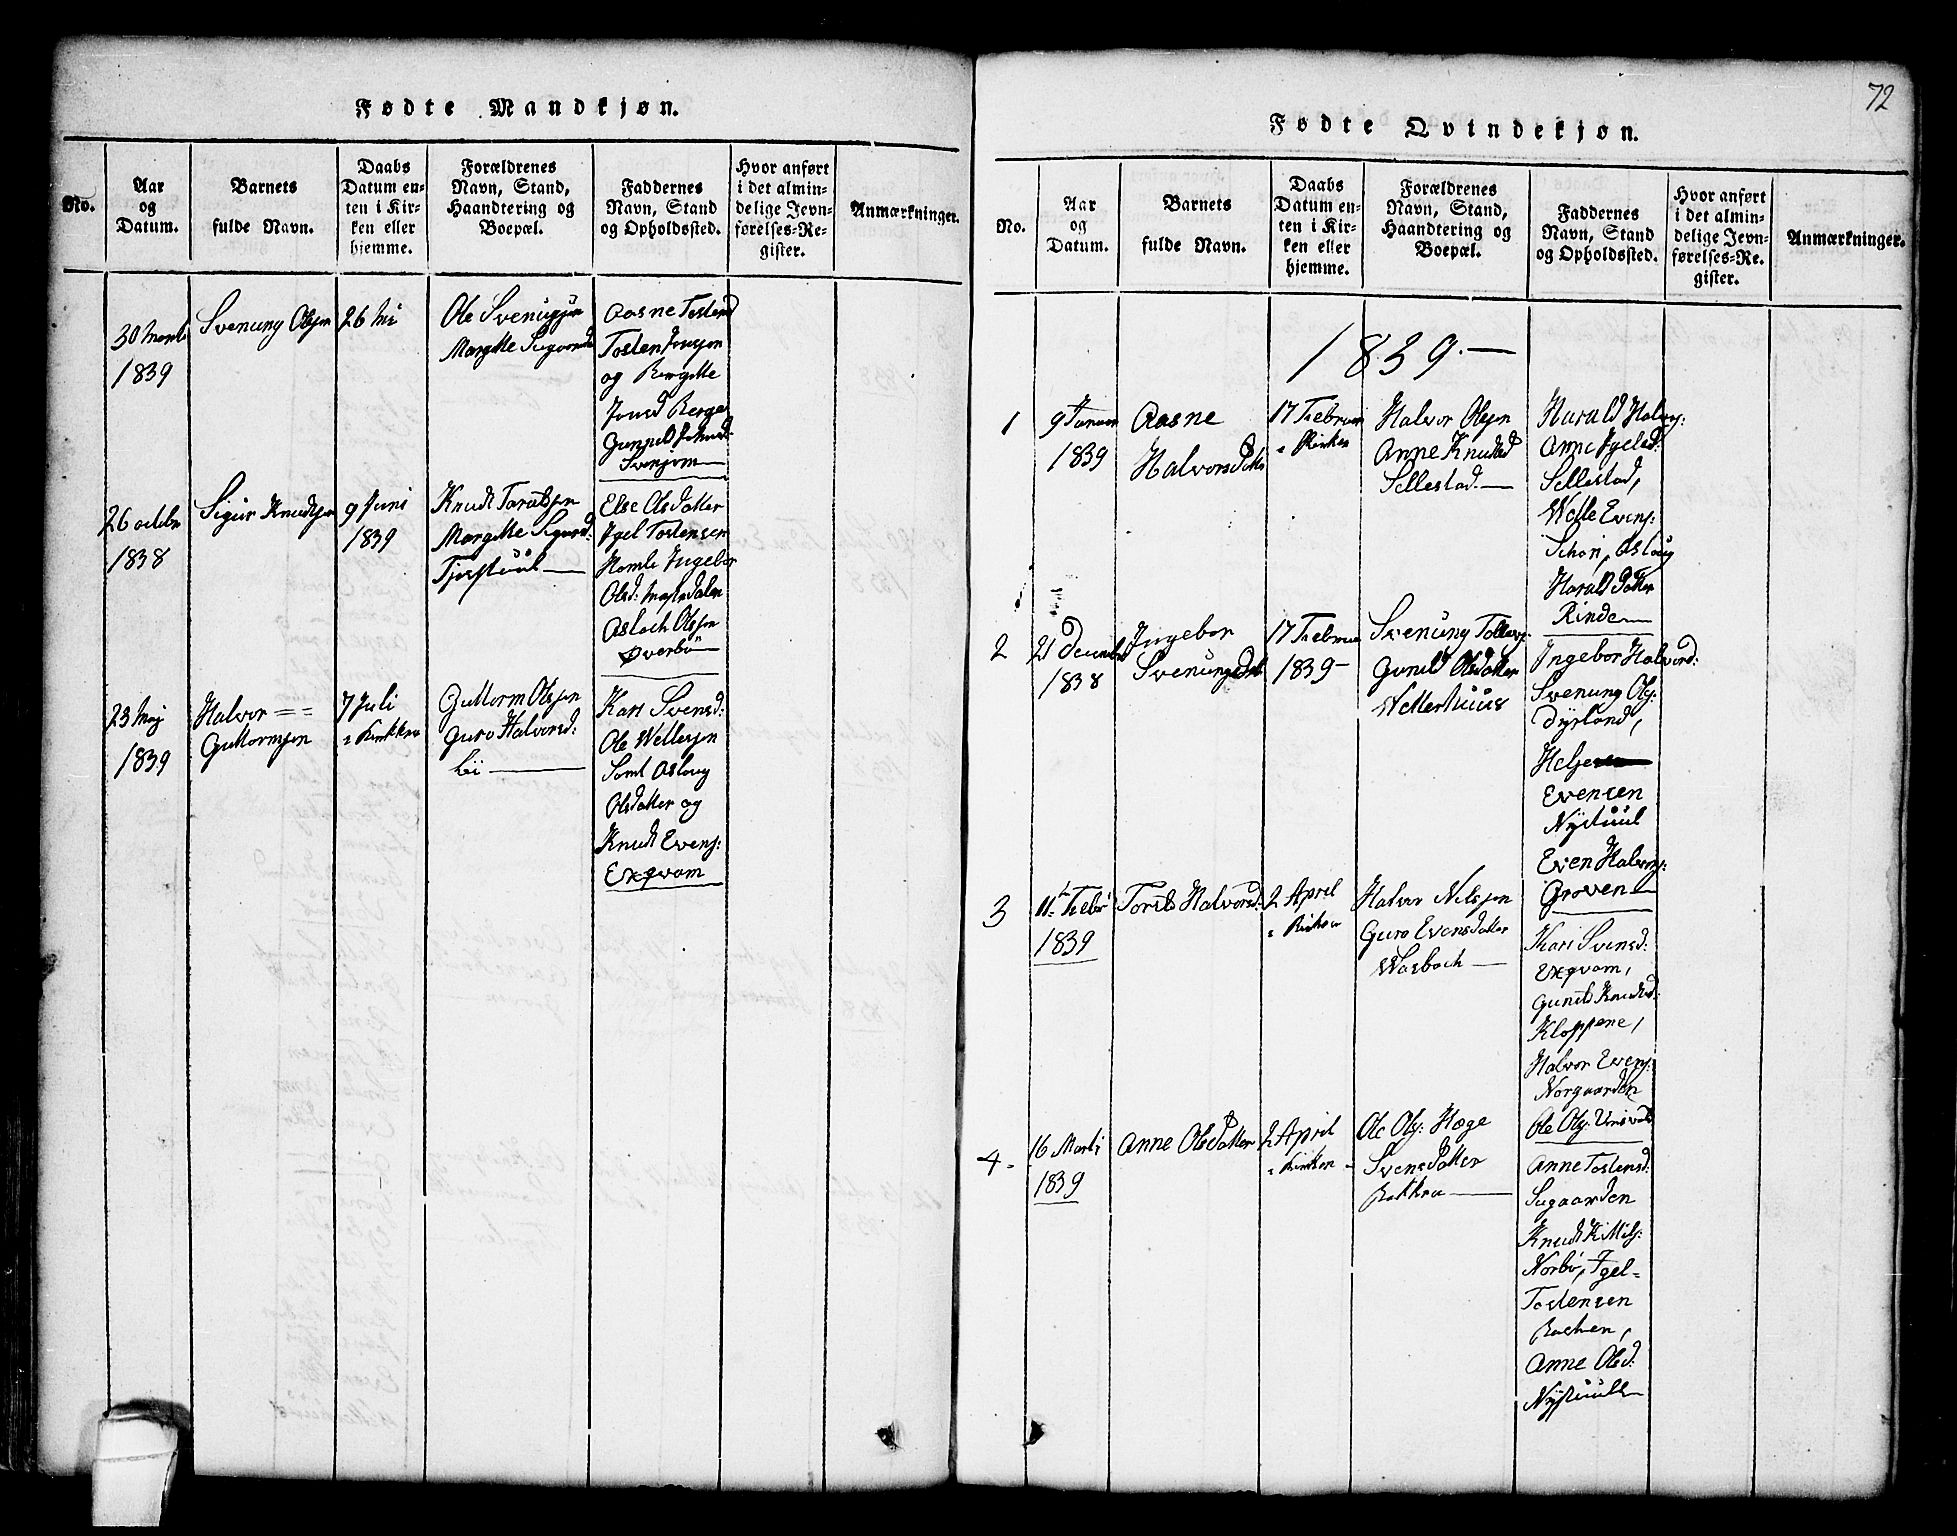 Fødte Mandkjøn.
No.
Aar
og
Datum.
Barnets
fulde Navn.
Daabs
Datum en-
ten i Kir-
ken eller
hjemme.
Forældrenes
Navn, Stand,
Haandtering og
Boepæl.
Faddernes
Navn, Stand
og Opholdssted.
Hvor anført
i det almin-
delige Jevn-
førelses-Re-
gister.
Anmærkninger.
30 Marti
1839
Svenung Olsøn
26
Ole Svenugsøn
Margitte
Aasne Tostend
Tosten
og Bergitte
Jonsd Berge
26 octobr
1838
Sigur Knudtsøn
9 Juni
1839
Knudt
Margitte Sigurd:
Tjostuul
Else Olsdatter
Igel Tostensen
Homle Ingebor
Olsd:
Asloch Olsøn
Øverbø
23 Maj
1839
Halvor ==
Guttormsøn
7 Juli
Guttorm Olsøn
Guro Halvorsd:
Lii
Kari Svensd:
Ole Wettesøn
Asloug
Olsdatter og
Knudt Evens:
Exqvam
72
Fødte Qvindekjøn.
No.
Aar
og
Datum.
Barnets
fulde Navn.
Daabs
Datum en-
ten i Kir-
ken eller
hjemme.
Forældrenes
Navn, Stand,
Haandtering og
Boepæl.
Faddernes
Navn, Stand
og Opholdssted.
Hvor anført
i det almin-
delige Jevn-
førelses-Re-
gister.
Anmærkninger.
1839.
1
9 Januar
1839
Aasne
Halvorsdatt
17 Februa
Kirken
Halvor Olsøn
Anne Knutsd
Sellestad.
Harald Halvors:
Anne Igelsd:
Sellestad,
Wette Evens:
Asloug
Harald datter
Rinde
2
21 December
1838
Ingebor
Svenungsdat
17 Februa
1839
Svenung
Gunild Olsdatter
Wetterhuus
Ingebor Halvord:
Svenung Ols:
Dyrland,
Helje
Evensen
Nystuul
Even Halvors:
Groven
3
11te Febr
1839
Torild Halvorsd:
2 April
Kirken
Halvor Nilsøn
Guro Evensdatter
Wasbach
Kari Svensd:
Exqvam,
Gunild Knudtsd:
Kloppene,
Halvor Evens:
Norgaarden
Ole Ols:
4
16 Marti
1839
Anne Olsdatter
2 April
Kirken
Ole Ols: Hæge
Svensdatter
Bakken
Anne Tostensd:
Sugaarden
Knudt
Norbø, Igel
Tostensen
Bachen,
Anne Olsd:
Nystuul